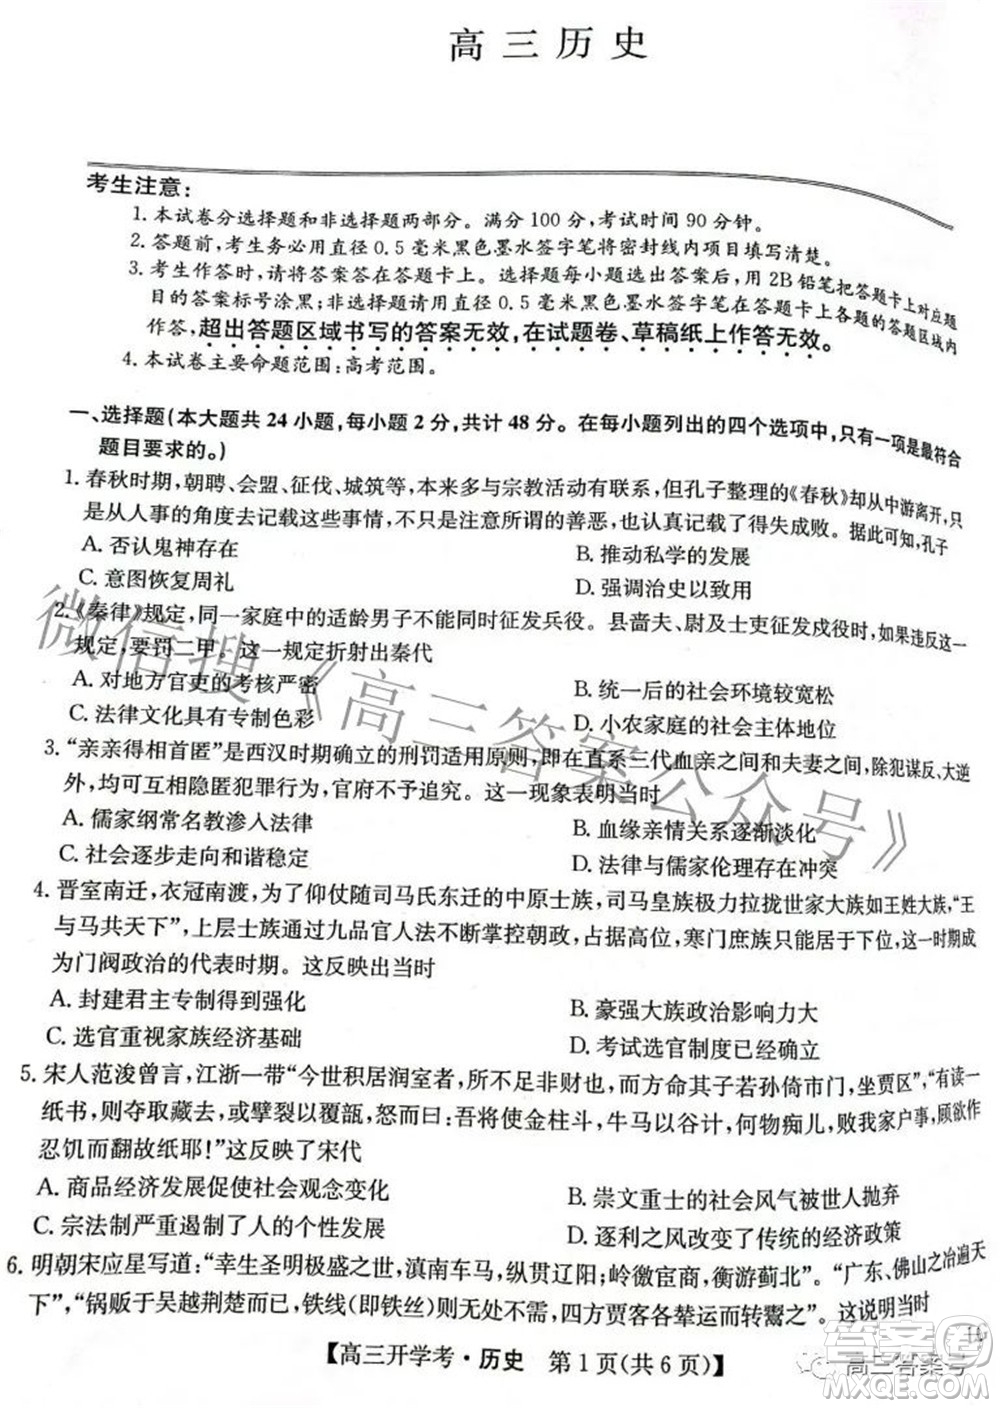 高三历史
考生注意：
1. 本试卷分选择题和非选择题两部分。满分100分，考试时间90分钟。
2. 答题前，考生务必用直径0.5毫米黑色墨水签字笔将密封线内项目填写清楚。
3. 考生作答时，请将答案答在答题卡上。选择题每小题选出答案后，用2B铅笔把答题卡上对应题
目的答案标号涂黑；非选择题请用直径0.5毫米黑色墨水签字笔在答题卡上各题的答题区域内
作答，超出答题区域书写的答案无效，在试题卷、草稿纸上作答无效。
4. 本试卷主要命题范围：高考范围。
一、选择题（本大题共24小题，每小题2分，共计48分。在每小题列出的四个选项中，只有一项是最符合
题目要求的。）
1. 春秋时期，朝聘、会盟、征伐、城筑等，本来多与宗教活动有联系，但孔子整理的《春秋》却从中游离开，只
是从人事的角度去记载这些事情，不只是注意所谓的善恶，也更注意记载了得失成败。据此可知，孔子
A. 否认鬼神存在
B. 推动私学的发展
C. 意图恢复周礼
D. 强调治史以致用
2. 《秦律》规定，同一家庭中的适龄男子不能同时征发兵役。县啬夫、尉及士吏征发戍役时，如果违反这一
规定，要罚二甲。这一规定折射出秦代
A. 对地方官吏的考核严密
B. 统一后的社会环境较宽松
C. 法律文化具有专制色彩
D. 小农家庭的社会主体地位
3. “亲亲得相首匿”是西汉时期确立的刑罚适用原则，即在直系三代血亲之间和夫妻之间，除犯谋反、大逆
外，均可隐匿犯罪行为，官府不予追究。这一现象表明当时
A. 儒家纲常名教渗入法律
B. 血缘亲情关系逐渐淡化
C. 社会逐步走向和谐稳定
D. 法律与儒家伦理存在冲突
4. 晋室南迁，衣冠南渡，为了仰仗随司马氏东迁的中原士族，司马皇族极力拉拢世家大族如王姓大族，“王
与马共天下”，上层士族通过九品官人法不断掌控朝政，占据高位，寒门庶族只能居于下位，这一时期成
为门阀政治的代表时期。这反映出当时
A. 封建君主专制得到强化
B. 豪强大族政治影响力大
C. 选官重视家族经济基础
D. 考试选官制度已经确立
5. 宋人范浚曾言，江浙一带“今世积居润室者，所不足非财也，而方命其子若孙倚市门，坐贾区”，“有读一
纸书，则夺取藏去，或擘裂以覆瓿，怒而曰：吾将使金柱斗，牛马以谷计，何物痴儿，败我家户事，顾欲作
忍饥而翻故纸耶！”这反映了宋代
A. 商品经济发展促使社会观念变化
B. 崇文重士的社会风气被世人抛弃
C. 宗法制严重遏制了人的个性发展
D. 逐利之风改变了传统的经济政策
6. 明朝宋应星写道：“幸生圣明极盛之世，滇南车马，纵贯辽阳；岭徼宦商，衡游蓟北”。“广东、佛山之冶遍天
下”，“锅贩于吴越荆楚而已，铁线（即铁丝）则无处不需，四方贾客各辇运而转鬻之”。这说明当时
【高三开学考·历史　第1页（共6页）】
微信搜《高三答案公众号》
高三答案号
答案圈
MXQE.COM